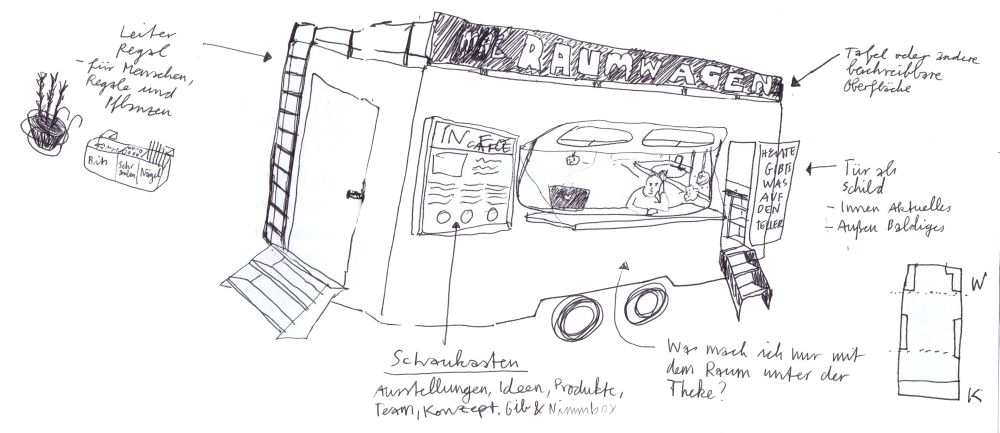 Leiter
Regal
- für Menschen,
Regale und
Pflanzen
Bits
Schrauben
Nägel
RAUMWAGEN
IN
CAFÉ
HEUTE
GIBTS
WAS
AUF
DEN
TELLER
Tafel oder andere
beschreibbare
Oberfläche
Tür als
Schild
- Innen Aktuelles
- Außen Baldiges
W
K
Schaukasten
Ausstellungen, Ideen, Produkte,
Team, Konzept, Gib & Nimmbox
Was mach ich nur mit
dem Raum unter der
Theke?